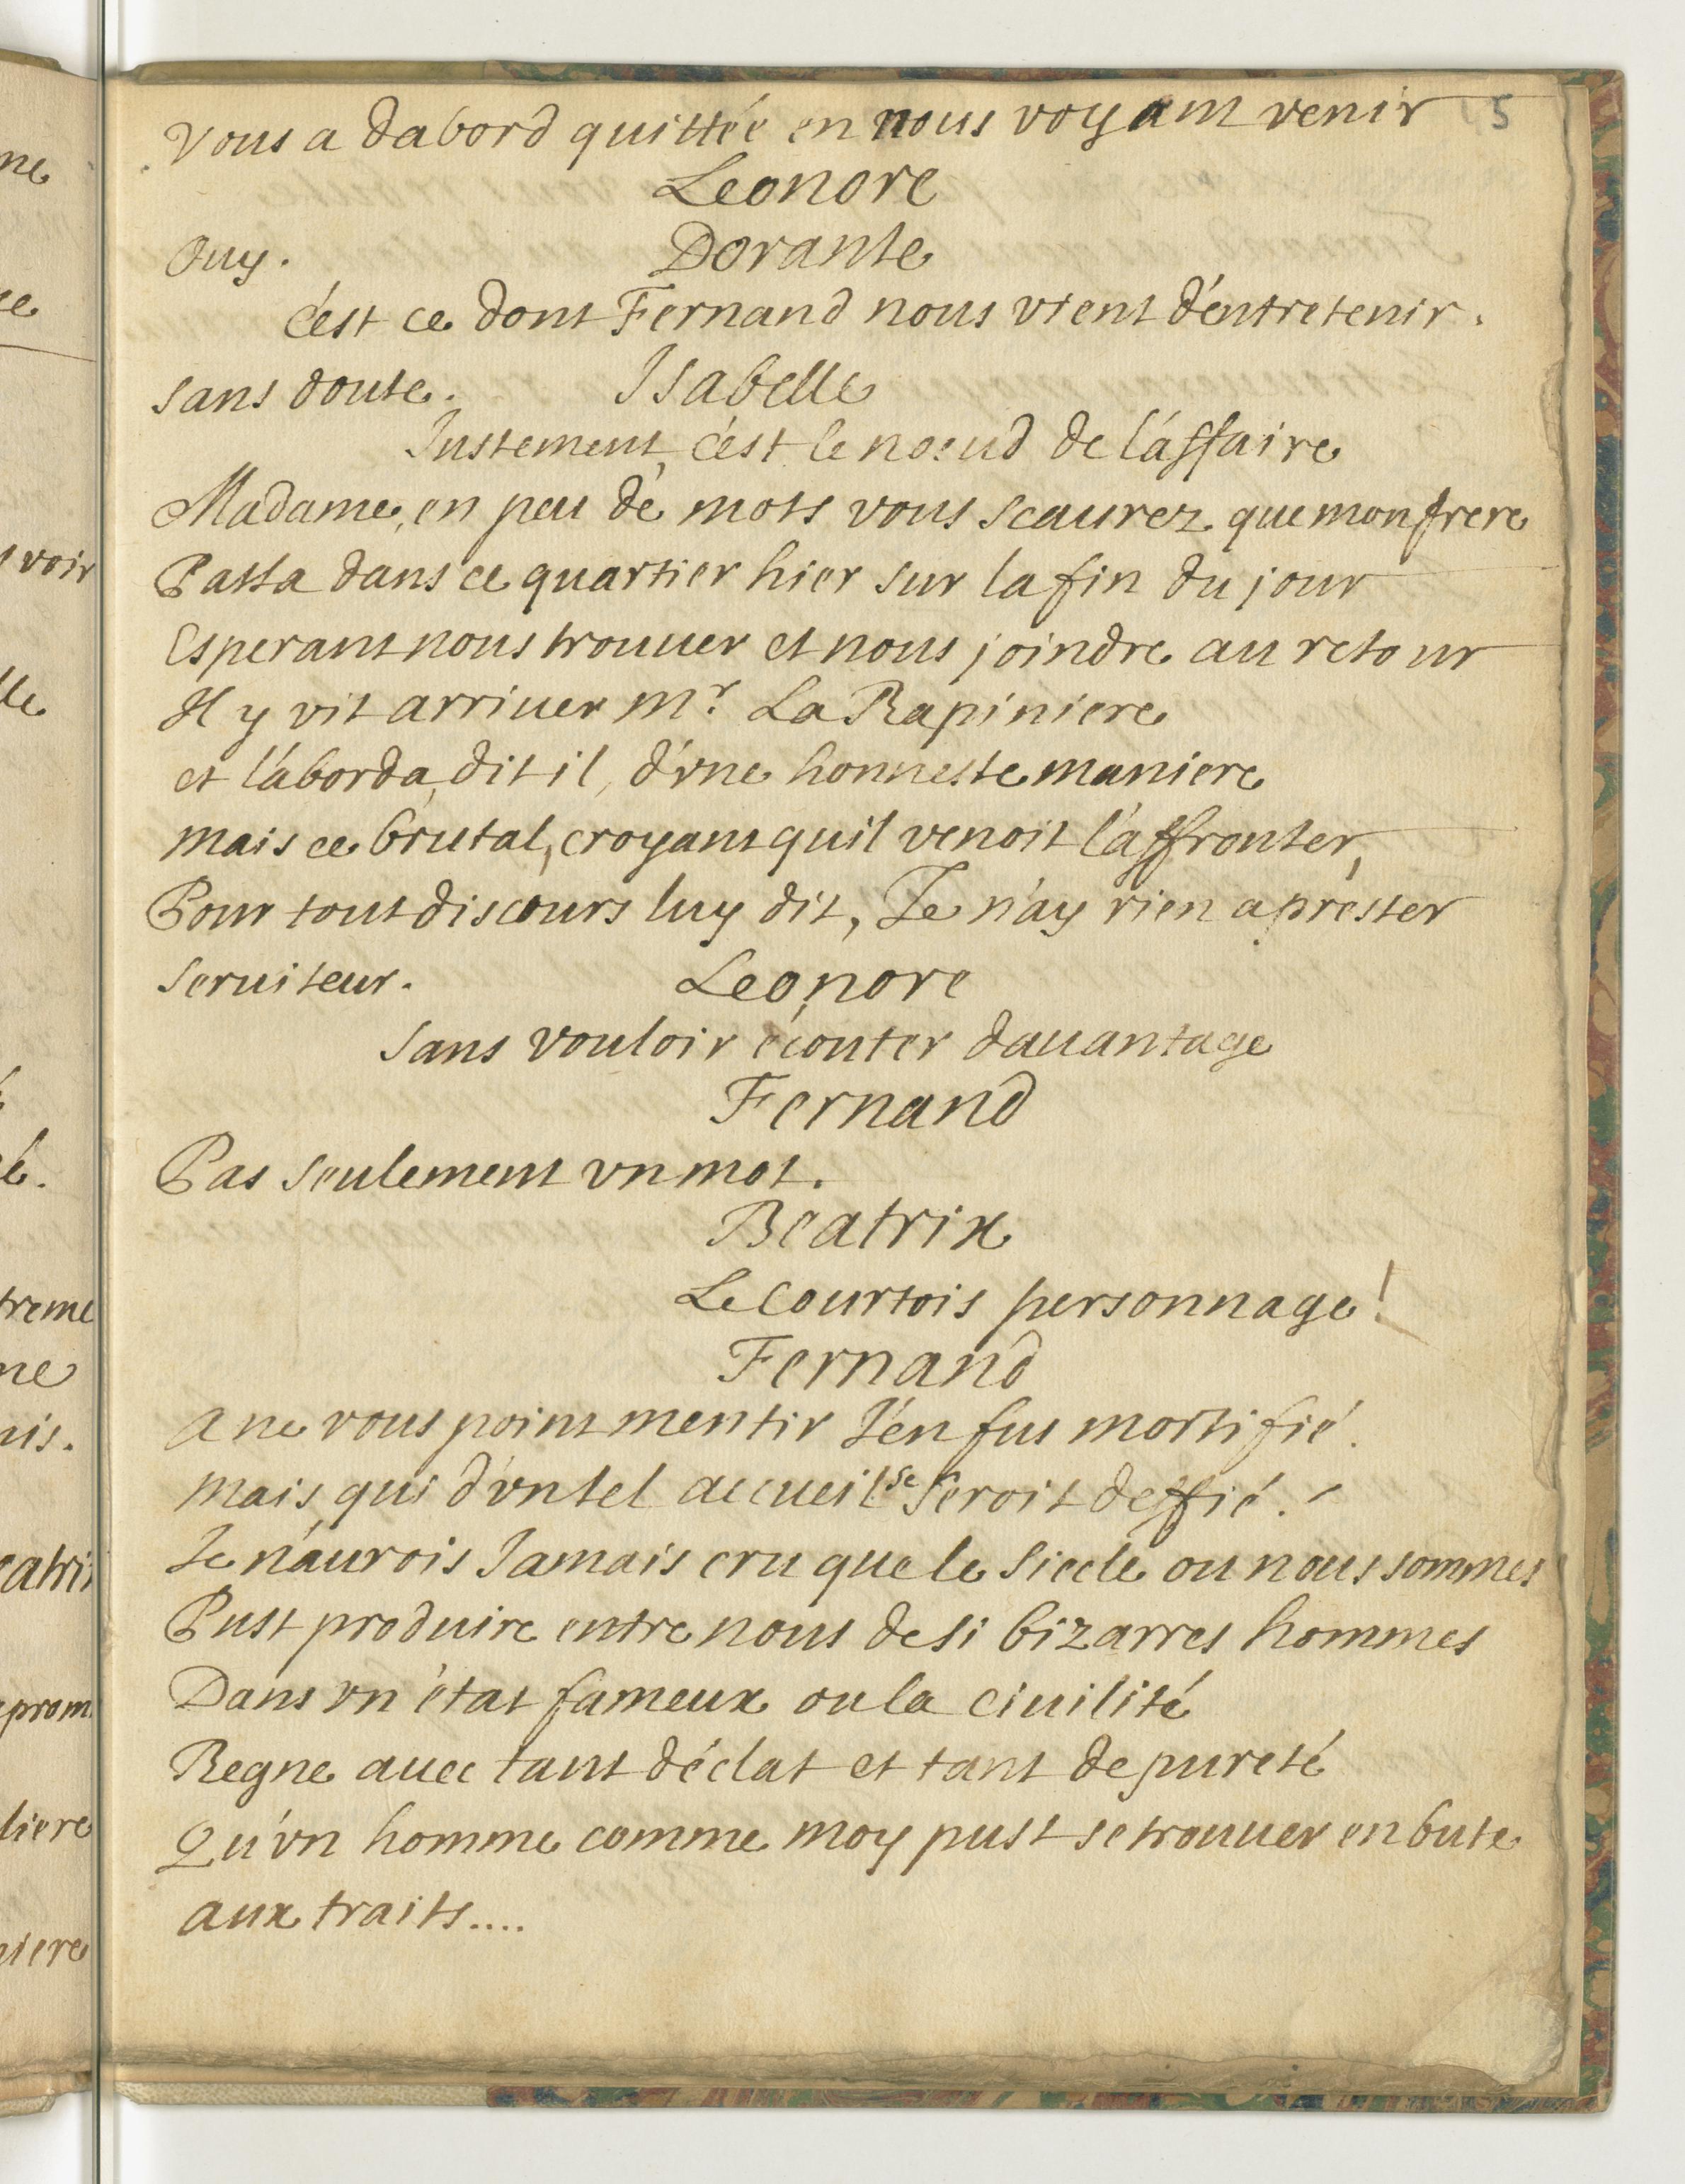 ne
ce
s voir
lle
é.
treme
ne
nis.
eatrix
prom.
liere
niere
5
vous a dabord quittée en nous voyant venir
Leonore
Ouy.
Dorante
c'est ce dont Fernand nous vient d'entretenir.
sans doute.
Isabelle
Justement, c'est le noeud de l'affaire
Madame, en peu de mots vous scaurez que mon frere
Passa dans ce quartier hier sur la fin du jour
Esperant nous trouuer et nous joindre au retour
Il y vit arriuer Mr. La Rapiniere
et l'aborda, dit il, d'vne honneste maniere
mais ce brutal, croyant quil venoit l'affronter,
Pour tout discours luy dit, Je n'ay rien a prester
seruiteur.
Leonore
sans vouloir écouter dauantage
Fernand
Pas seulement vn mot.
Beatrix
Le courtois personnage!
Fernand
A ne vous point mentir J'en fus mortifié.
mais, qui d'vn tel accueil se seroit deffié.
Je n'aurois Jamais cru que le siecle ou nous sommes
Pust produire entre nous de si bizarres hommes
Dans vn état fameux ou la ciuilité
Regne auec tant déclat et tant de pureté
Qu'vn homme comme moy pust se trouuer en bute
aux traits....